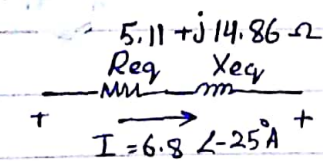 5.11 + j 14.86 Ω
Req Xeq
+ +
I = 6.8 ∠-25°A